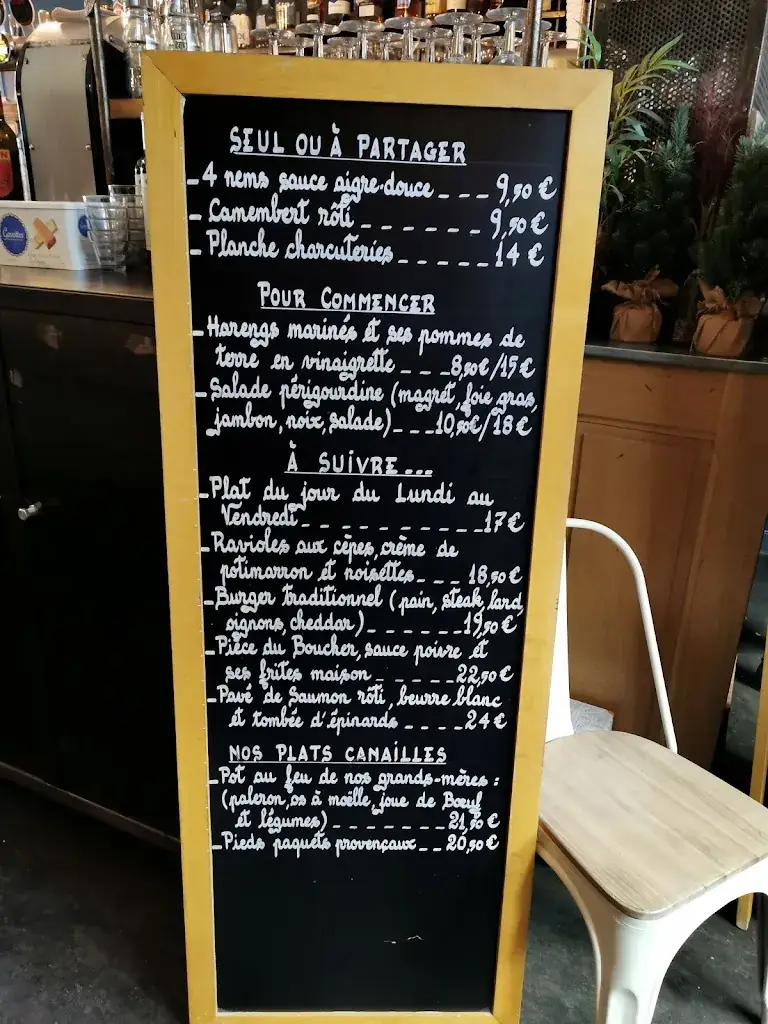 SEUL OU À PARTAGER
-4 nems sauce aigre-douce _ _ _ 9,50 €
-Camembert rôti _ _ _ _ _ _ 9,50 €
-Planche charcuteries _ _ _ _ _ 14 €
POUR COMMENCER
-Harengs marinés et ses pommes de
terre en vinaigrette _ _ _ 8,50€/15€
-Salade périgourdine (magret, foie gras,
jambon, noix, salade) _ _ _ 10,50€/18€
À SUIVRE...
-Plat du jour du Lundi au
Vendredi _ _ _ _ _ _ _ _ _ _ 17€
-Ravioles aux cèpes, crème de
potimarron et noisettes _ _ _ 18,50€
-Burger traditionnel (pain, steak, lard,
oignons, cheddar) _ _ _ _ _ _ 19,50€
-Pièce du Boucher, sauce poivre et
ses frites maison _ _ _ _ _ 22,50€
-Pavé de Saumon rôti, beurre blanc
et tombée d'épinards _ _ _ _ 24€
NOS PLATS CANAILLES
-Pot au feu de nos grands-mères :
(paleron, os à moëlle, joue de Bœuf
et légumes) _ _ _ _ _ _ _ 21,50€
-Pieds paquets provençaux _ _ 20,50€
Gavottes